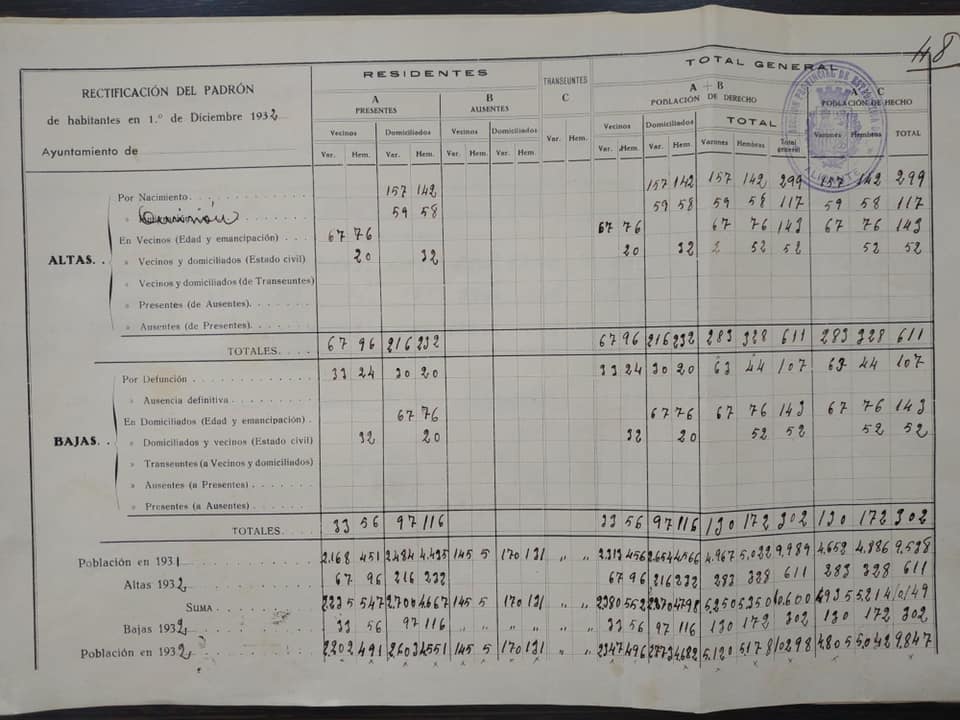 48
RECTIFICACIÓN DEL PADRÓN
de habitantes en 1.º de Diciembre 1932
Ayuntamiento de
RESIDENTES
A
PRESENTES
B
AUSENTES
TRANSEUNTES
C
TOTAL GENERAL
A + B
POBLACIÓN DE DERECHO
A C
POBLACIÓN DE HECHO
Vecinos Domiciliados Vecinos Domiciliados Vecinos Domiciliados TOTAL
Var. Hem. Var. Hem. Var. Hem. Var. Hem. Var. Hem. Var. Hem. Var. Hem. Varones Hembras Total general Varones Hembras TOTAL
SECCION PROVINCIAL DE ESTADISTICA
ALICANTE
ALTAS. .
Por Nacimiento. 157 142 157 142 157 142 299 157 142 299
» 59 58 59 58 59 58 117 59 58 117
En Vecinos (Edad y emancipación) 67 76 67 76 67 76 143 67 76 143
» Vecinos y domiciliados (Estado civil) 20 32 20 32 52 52 52 52
» Vecinos y domiciliados (de Transeuntes)
» Presentes (de Ausentes).
» Ausentes (de Presentes).
TOTALES. 67 96 216 232 67 96 216 232 283 328 611 283 328 611
BAJAS. .
Por Defunción 33 24 30 20 33 24 30 20 63 44 107 63 44 107
» Ausencia definitiva
En Domiciliados (Edad y emancipación) 67 76 67 76 67 76 143 67 76 143
» Domiciliados y vecinos (Estado civil) 32 20 32 20 52 52 52 52
» Transeuntes (a Vecinos y domiciliados)
» Ausentes (a Presentes)
» Presentes (a Ausentes)
TOTALES. 33 56 97 116 33 56 97 116 130 172 302 130 172 302
Población en 1931 2.168 451 2.484 4.435 145 5 170 131 » » 2.313 456 2.654 4.566 4.967 5.022 9.989 4.652 4.886 9.538
Altas 1932 67 96 216 232 67 96 216 232 283 328 611 283 328 611
SUMA 2235 547 2.700 4.667 145 5 170 131 » » 2380 552 2870 4798 5.250 5.350 10.600 4935 5.214 10.149
Bajas 1932 33 56 97 116 » » » » » » 33 56 97 116 130 172 302 130 172 302
Población en 1932 2.202 491 2.603 4.551 145 5 170 131 » » 2347 496 2773 4.682 5.120 5.178 10298 4.805 5.042 9.847